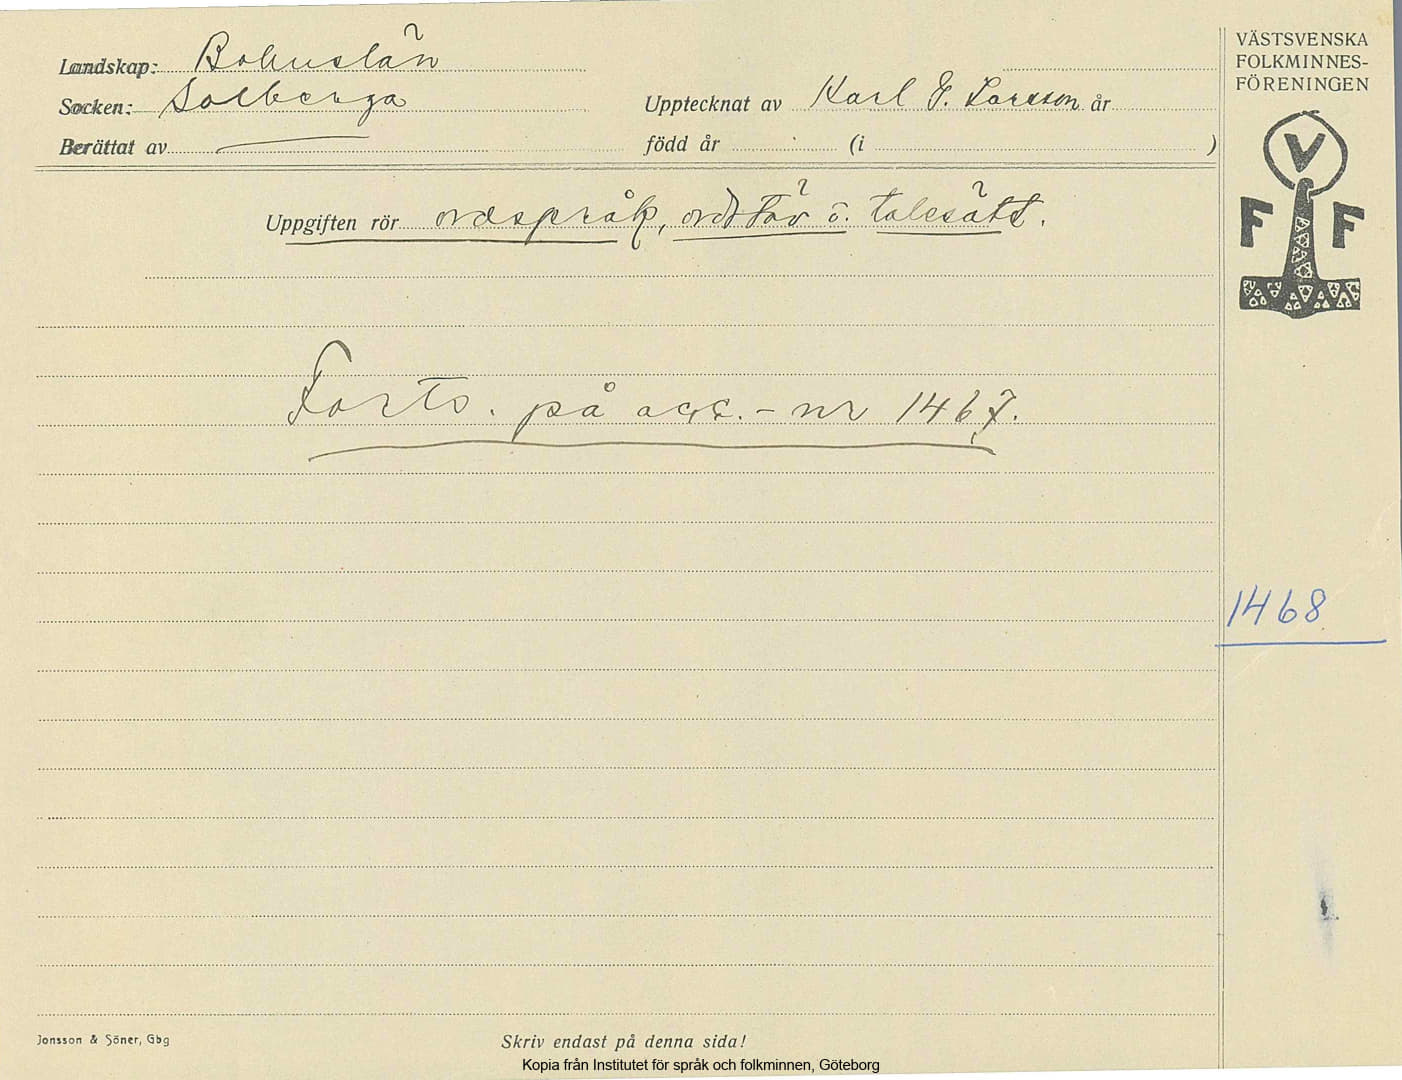 Landskap: Bohuslän
Socken: Solberga
Upptecknat av Karl G. Larsson år
Berättat av
född år (i )
VÄSTSVENSKA
FOLKMINNES-
FÖRENINGEN
V
F F
Uppgiften rör ordspråk, ordstäv o. talesätt.
Forts. på acc.-nr 1467.
1468
Jonsson & Söner, Gbg
Skriv endast på denna sida!
Kopia från Institutet för språk och folkminnen, Göteborg